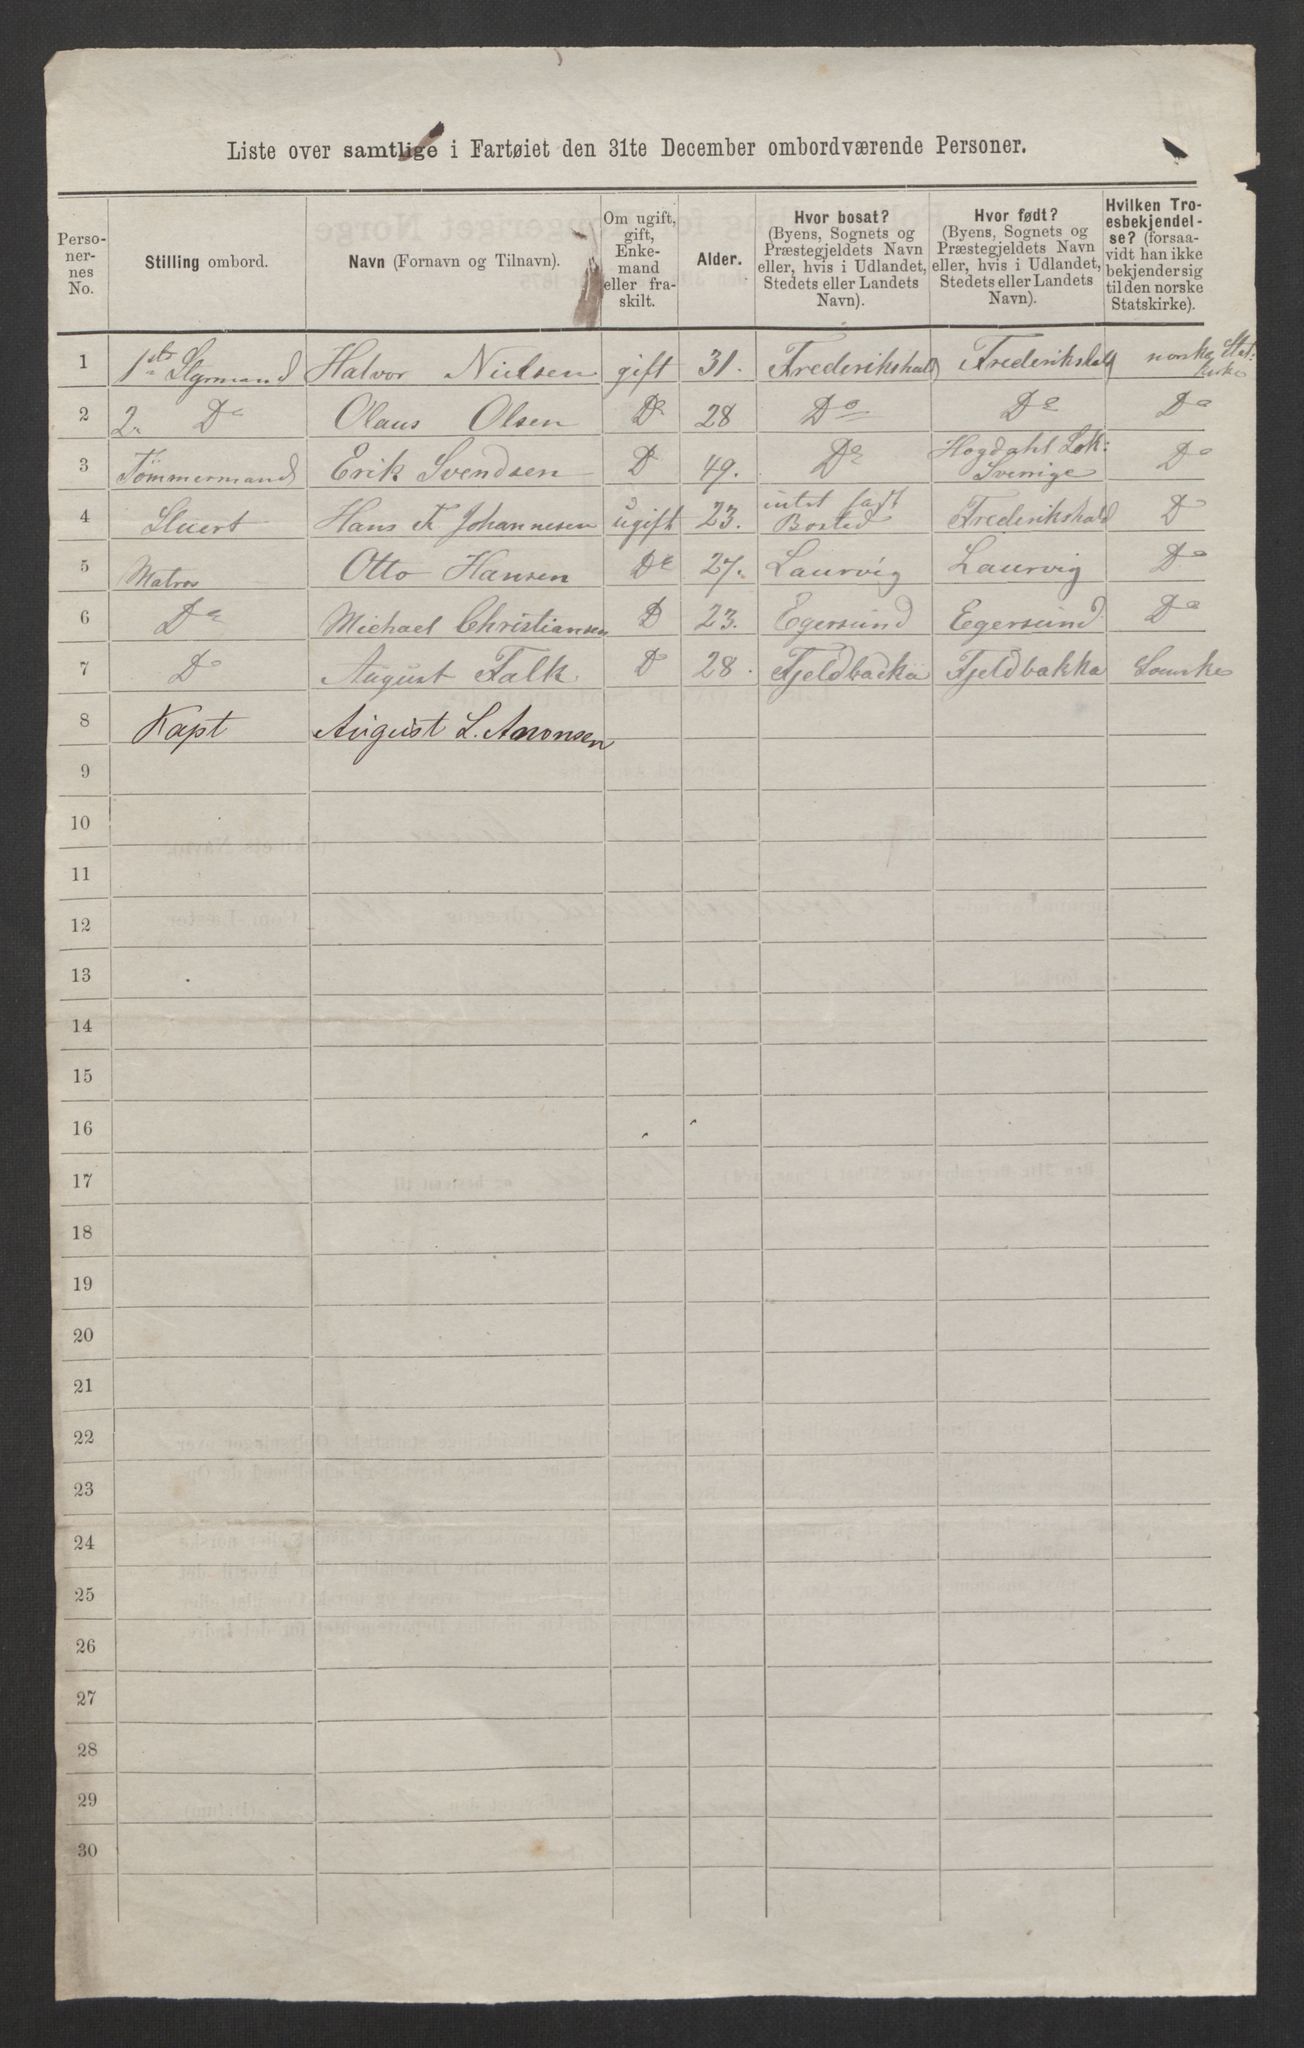 Liste over samtlige i Fartøiet den 31te December ombordværende Personer.
Perso-
ner-
nes
No.
Stilling ombord.
Navn (Fornavn og Tilnavn).
Om ugift,
gift,
Enke-
mand
eller fra-
skilt.
Alder.
Hvor bosat?
(Byens, Sognets og
Præstegjeldets Navn
eller, hvis i Udlandet,
Stedets eller Landets
Navn).
Hvor født?
(Byens, Sognets og
Præstegjeldets Navn
eller, hvis i Udlandet,
Stedets eller Landets
Navn).
Hvilken Tro-
esbekjendel-
se? (forsaa-
vidt han ikke
bekjender sig
til den norske
Statskirke).
1 1ste Styrmand Halvor Nielsen gift 31. Frederikshald Frederikshald norske Stats-
kirke
2 2. Do Olaus Olsen Do 28 Do Do Do
3 Tömmermand Erik Svendsen D 49. Do Hogdahl Sok:
Sverige Do
4 Stuert Hans F Johannesen ugift 23. intet fast
Bosted Frederikshald D
5 Matros Otto Hansen Do 27. Laurvig Laurvig Do
6 Do Michael Christiansen D 23. Egersund Egersund Do
7 Do August Falk D 28. Fjeldbacka Fjeldbakka
8 Kapt August L. Aronsen
9
10
11
12
13
14
15
16
17
18
19
20
21
22
23
24
25
26
27
28
29
30